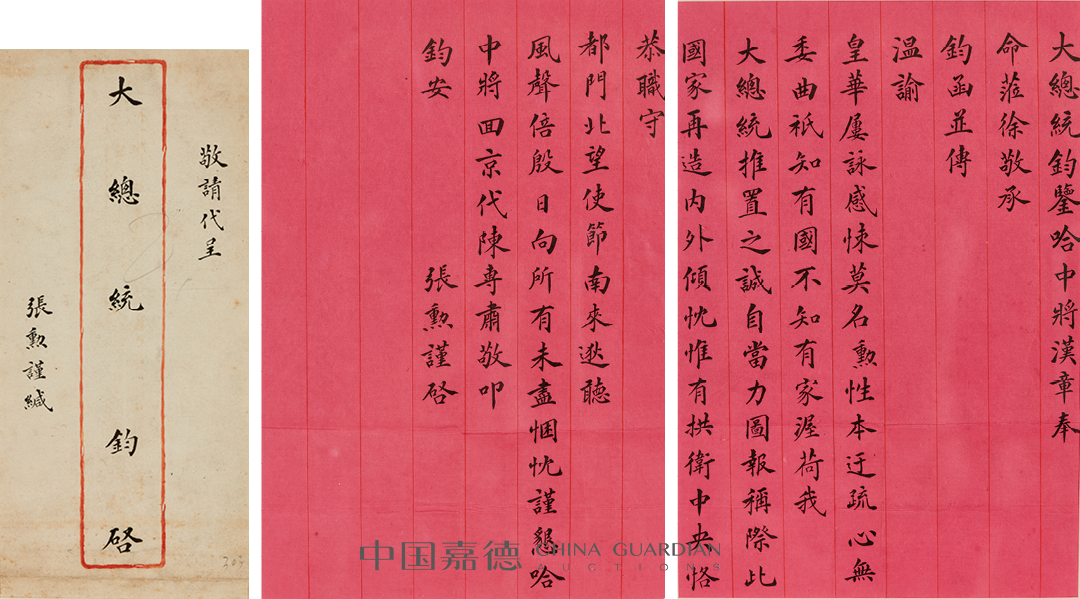 敬請代呈
大總統鈞啓
張勳謹緘
大總統鈞鑒哈中將漢章奉
命蒞徐敬承
鈞函並傳
溫諭
皇華屢詠感悚莫名勳性本迂疏心無
委曲祇知有國不知有家渥荷我
大總統推置之誠自當力圖報稱際此
國家再造內外傾忱惟有拱衛中央恪
恭職守
都門北望使節南來逖聽
風聲倍殷日向所有未盡悃忱謹懇哈
中將回京代陳專肅敬叩
鈞安 張勳謹啓
中国嘉德 CHINA GUARDIAN
AUCTIONS